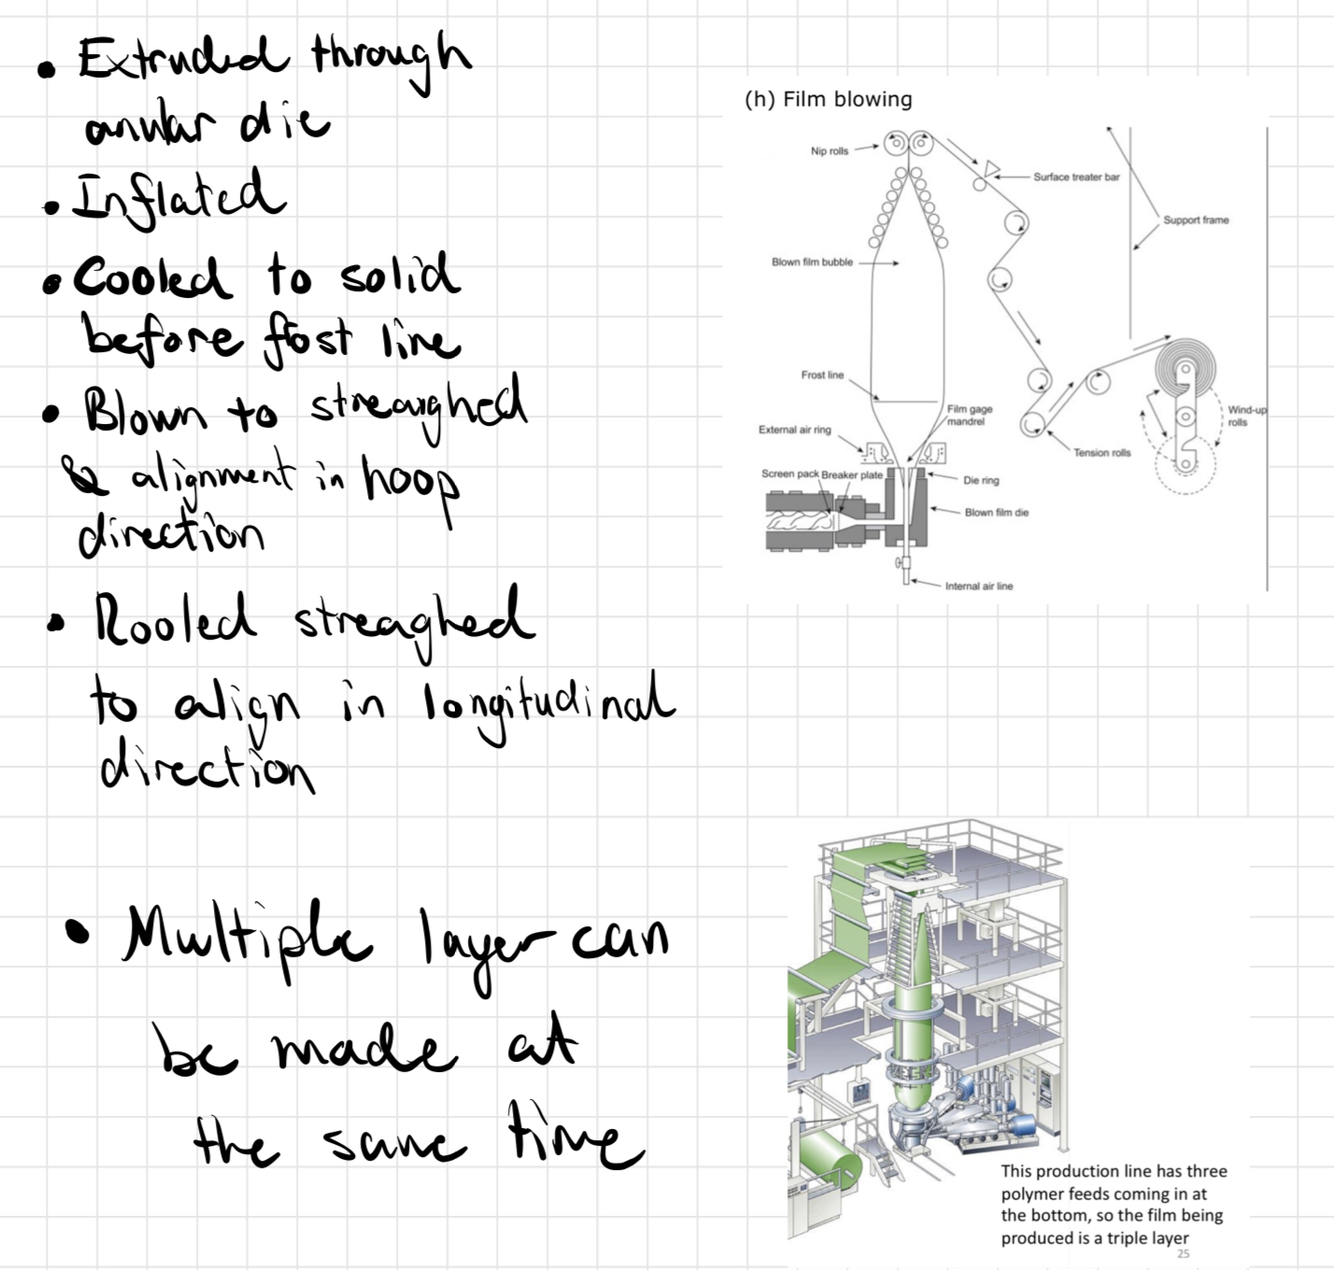 • Extruded through
anular die
• Inflated
• Cooled to solid
before fost line
• Blown to streaighed
& alignment in hoop
direction
• Rooled streaghed
to align in longitudinal
direction
• Multiple layer can
be made at
the same time
(h) Film blowing
Nip rolls
Surface treater bar
Support frame
Blown film bubble
Frost line
Film gage
mandrel
External air ring
Wind-up
rolls
Tension rolls
Screen pack Breaker plate
Die ring
Blown film die
Internal air line
This production line has three
polymer feeds coming in at
the bottom, so the film being
produced is a triple layer
25